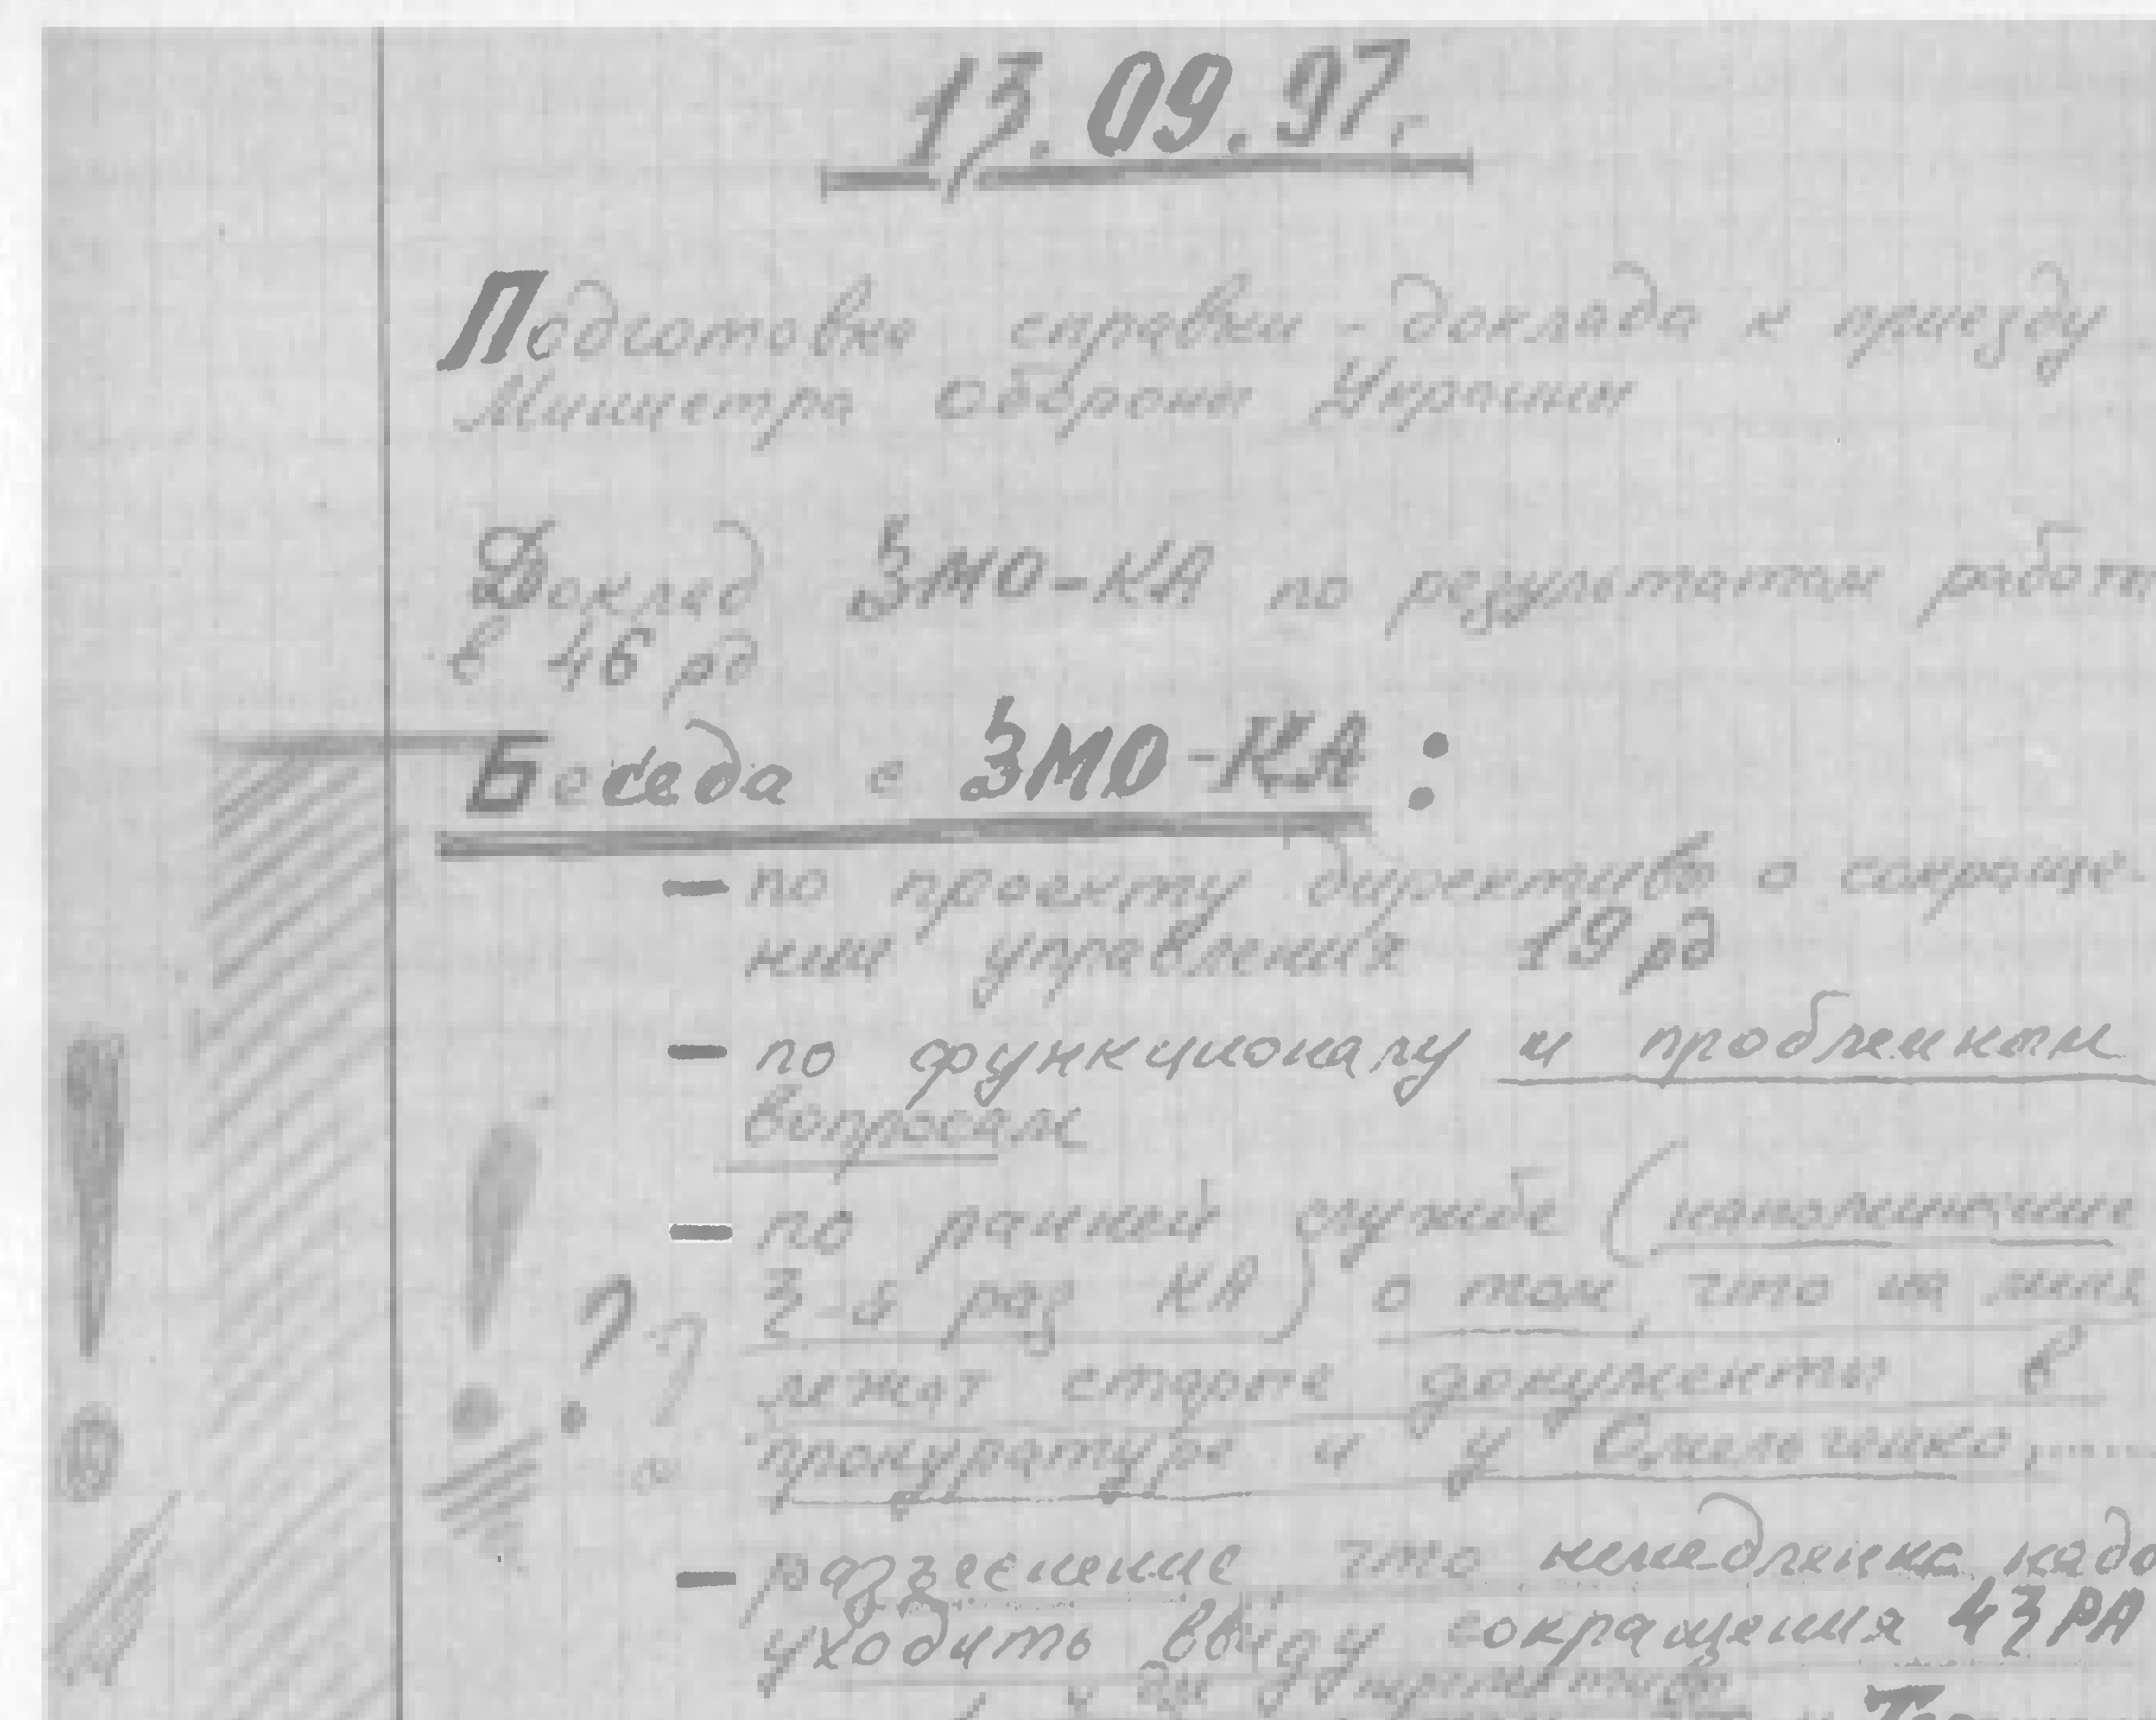 13.09.97г.
Подготовка справки-доклада к приезду
Министра Обороны Украины
Доклад ЗМО-КА по результатам работы
в 46 рд
Беседа с ЗМО-КА :
— по проекту директивы о сокраще-
нии управления 19 рд
— по функционалу и проблемным
вопросам
— по ранней службе (напоминание
3-й раз КА) о том, что на меня
лежат старые документы в
прокуратуре и у Омельченко, .....
— разъяснение, что немедленно надо
уходить ввиду сокращения 43 РА